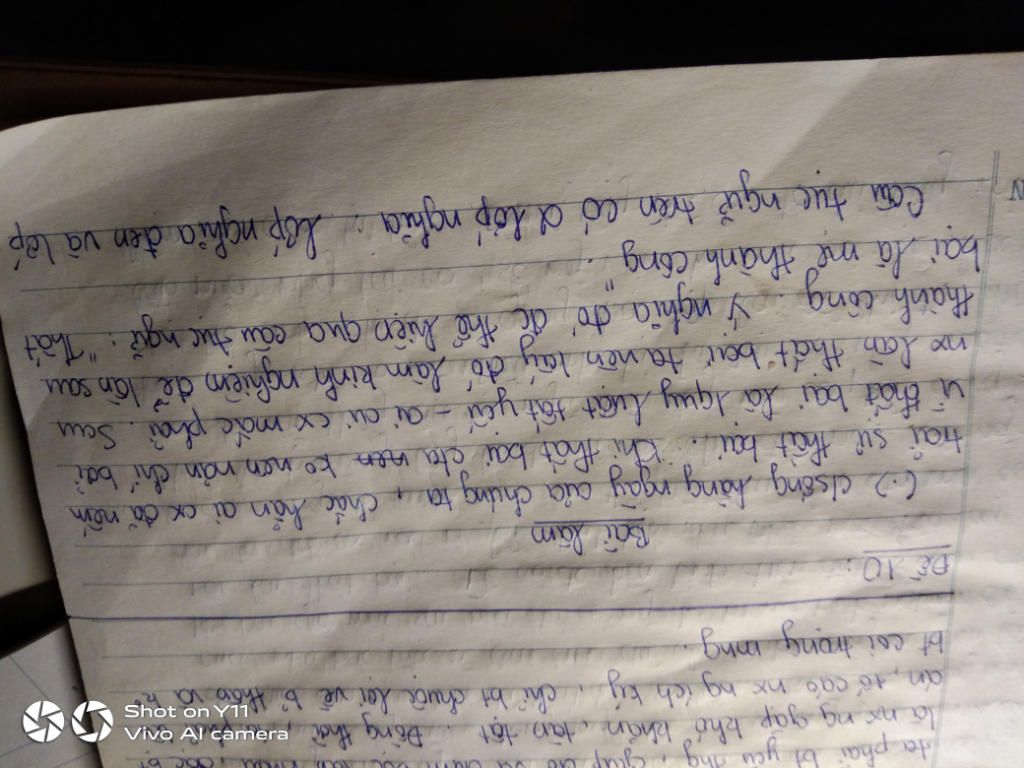 ta phải bt yêu thg, giúp đỡ và
là nx ng gặp khó khăn, tàn tật. Đồng thời,
án, tố cáo nx ng ích kỷ, chỉ bt chuộc lợi về b thân và k°
bt coi trọng mng.
Đề 10:
Bài làm
(.) csống hàng ngày của chúng ta, chắc hẳn ai cx đã nếm
trải sự thất bại. Khi thất bại cta nên ko nên nản chí bởi
vì thất bại là quy luật tất yếu - ai ai cx mắc phải. Sau
nx lần thất bại ta nên lấy đó làm kinh nghiệm để lần sau
thành công. Ý nghĩa đó đc thể hiện qua câu tục ngữ: "Thất
bại là mẹ thành công".
Câu tục ngữ trên có 2 lớp nghĩa: lớp nghĩa đen và lớp
Shot on Y11
Vivo AI camera